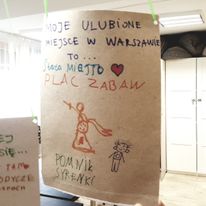 MOJE ULUBIONE
MIEJSCE W WARSZAWIE
TO...
STARE MIASTO
PLAC ZABAW
POMNIK
SYRENKI
EJ
SIĘ...